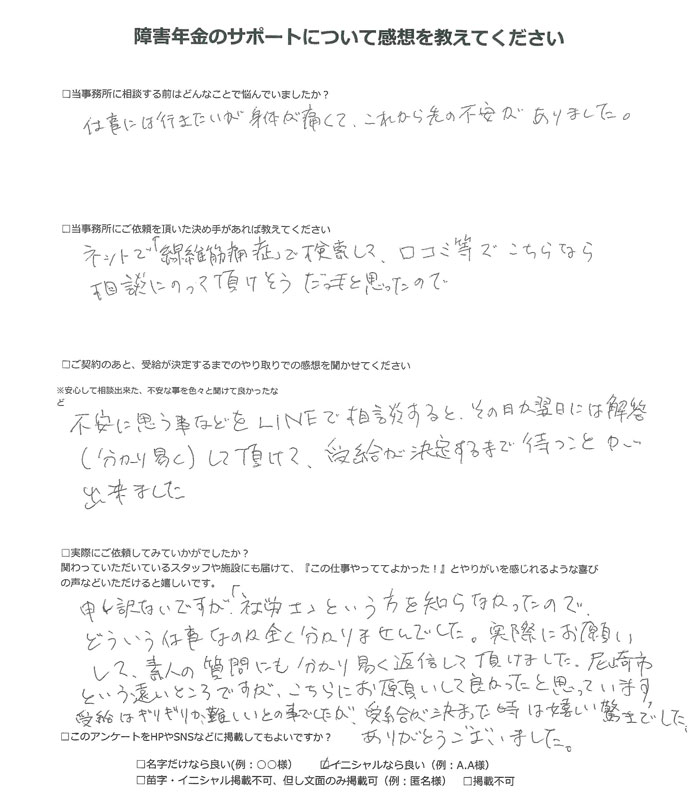 障害年金のサポートについて感想を教えてください
□当事務所に相談する前はどんなことで悩んでいましたか？
仕事には行きたいが身体が痛くて、これから先の不安がありました。
□当事務所にご依頼を頂いた決め手があれば教えてください
ネットで「線維筋痛症」で検索して、口コミ等でこちらなら
相談にのって頂けそうだなと思ったので
□ご契約のあと、受給が決定するまでのやり取りでの感想を聞かせてください
※安心して相談出来た、不安な事を色々と聞けて良かったな
ど
不安に思う事などをLINEで相談すると、その日か翌日には解答
(分かり易く)して頂けて、受給が決定するまで待つことが
出来ました
□実際にご依頼してみていかがでしたか？
関わっていただいているスタッフや施設にも届けて、『この仕事やっててよかった！』とやりがいを感じれるような喜び
の声などいただけると嬉しいです。
申し訳ないですが、「社労士」という方を知らなかったので、
どういう仕事なのか全く分かりませんでした。実際にお願い
して、素人の質問にも分かり易く返信して頂けました。尼崎市
という遠いところですが、こちらにお願いして良かったと思っています。
受給はギリギリか、難しいとの事でしたが、受給が決まった時は嬉しい驚きでした。
ありがとうございました。
□このアンケートをHPやSNSなどに掲載してもよいですか？
□名字だけなら良い(例：〇〇様) ☑イニシャルなら良い（例：A.A様）
□苗字・イニシャル掲載不可、但し文面のみ掲載可（例：匿名様） □掲載不可